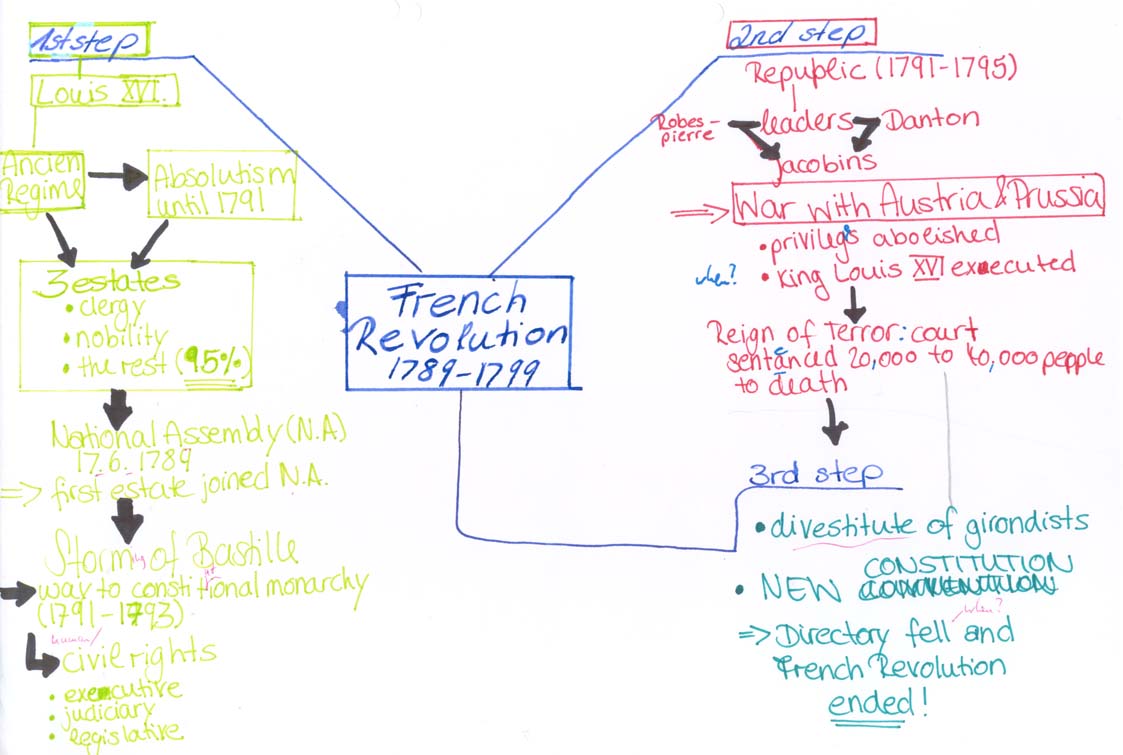 1st step
Louis XVI.
Ancien
Regime
Absolutism
until 1791
3 estates
• clergy
• nobility
• the rest (95%)
National Assembly (N.A)
17.6. 1789
=> first estate joined N.A.
Storming of Bastille
way to constitutional monarchy
(1791-1793)
human/
civil rights
• executive
• judiciary
• legislative
French
Revolution
1789-1799
2nd step
Republic (1791-1795)
Robes-
pierre
leaders
Danton
Jacobins
=> War with Austria & Prussia
• privileges abolished
when?
• king Louis XVI executed
Reign of Terror: court
sentenced 20,000 to 40,000 people
to death
3rd step
• divestitute of girondists
CONSTITUTION
• NEW
when?
=> Directory fell and
French Revolution
ended!